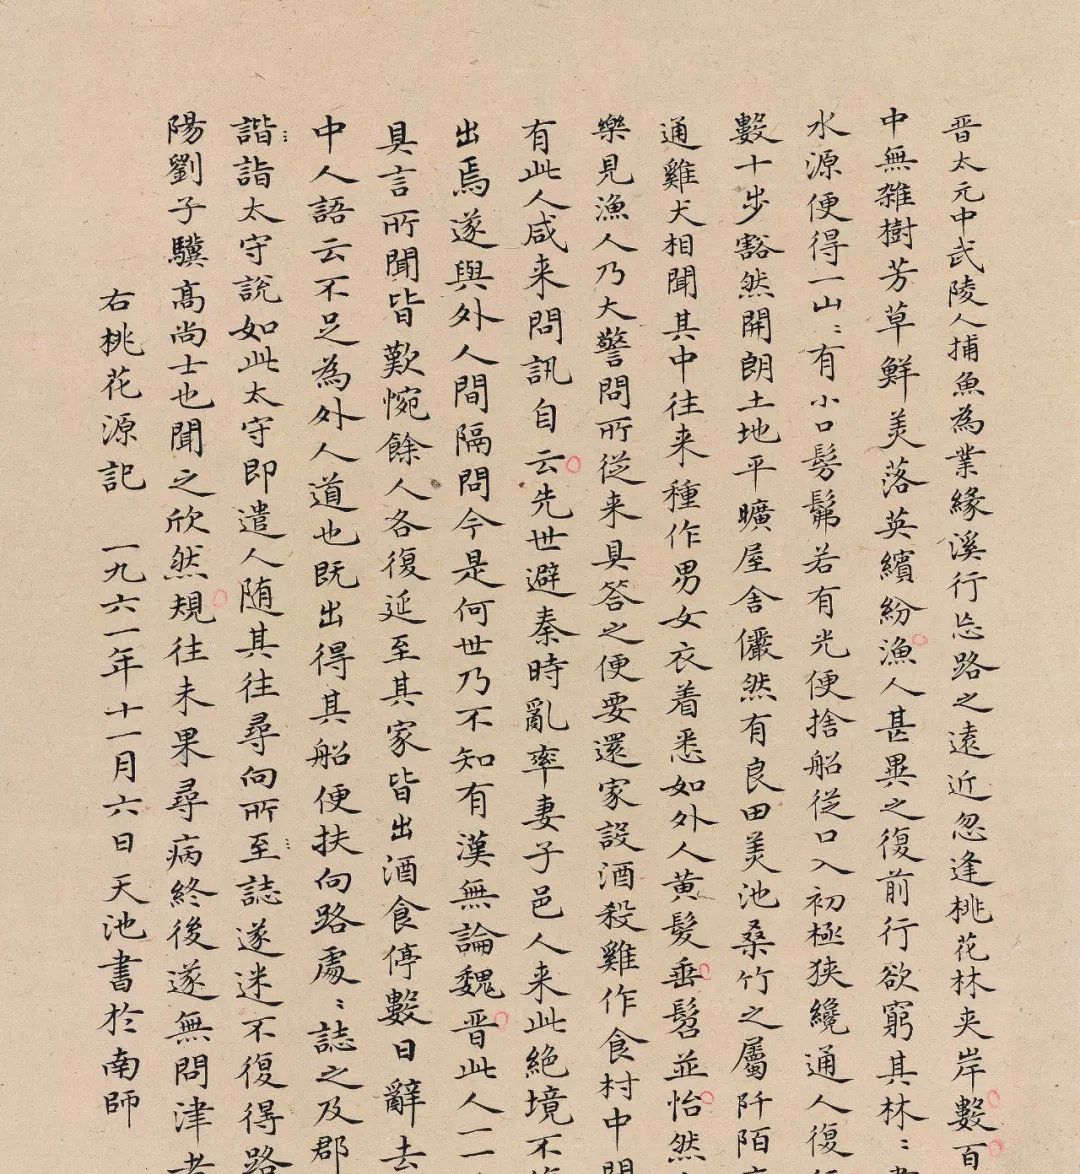 晋太元中武陵人捕魚為業緣溪行忘路之遠近忽逢桃花林夾岸數百
中無雜樹芳草鮮美落英繽紛漁人甚異之復前行欲窮其林〻
水源便得一山〻有小口髣髴若有光便捨船從口入初極狹纔通人復
數十步豁然開朗土地平曠屋舍儼然有良田美池桑竹之屬阡陌
通雞犬相聞其中往来種作男女衣着悉如外人黄髮垂髫並怡然
樂見漁人乃大警問所從来具答之便要還家設酒殺雞作食村中
有此人咸来問訊自云先世避秦時亂率妻子邑人来此絶境不
出焉遂與外人間隔問今是何世乃不知有漢無論魏晋此人一一
具言所聞皆歎惋餘人各復延至其家皆出酒食停數日辭去
中人語云不足為外人道也既出得其船便扶向路處〻誌之及郡
諧詣太守說如此太守即遣人随其往尋向所至誌遂迷不復得路
陽劉子驥髙尚士也聞之欣然規往未果尋病終後遂無問津者
右桃花源記 一九六一年十一月六日天池書於南師